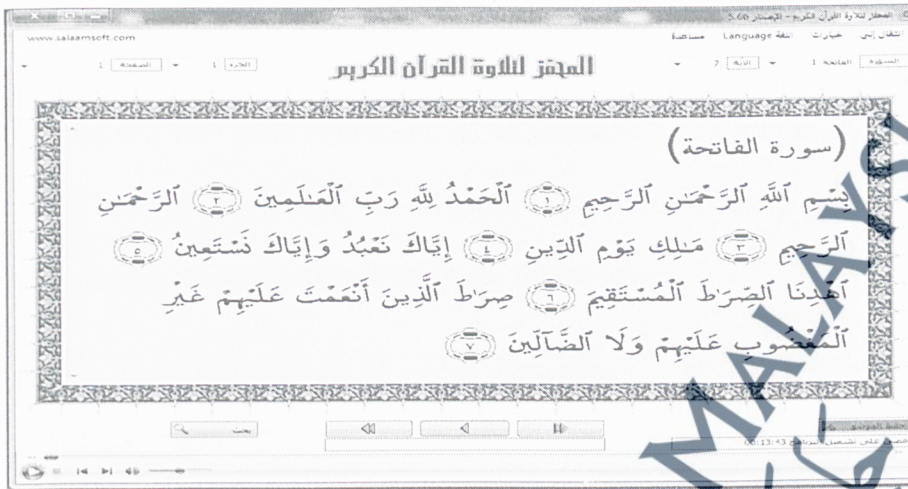 المحفز لتلاوة القرآن الكريم - الإصدار 5.60
www.salaamsoft.com
انتقال إلى خيارات اللغة Language مساعدة
السورة الفاتحة 1 الآية 7 الجزء 1 الصفحة 1
المحفز لتلاوة القرآن الكريم
(سورة الفاتحة)
بِسْمِ ٱللَّهِ ٱلرَّحْمَـٰنِ ٱلرَّحِيمِ ١ ٱلْحَمْدُ لِلَّهِ رَبِّ ٱلْعَـٰلَمِينَ ٢ ٱلرَّحْمَـٰنِ
ٱلرَّحِيمِ ٣ مَـٰلِكِ يَوْمِ ٱلدِّينِ ٤ إِيَّاكَ نَعْبُدُ وَإِيَّاكَ نَسْتَعِينُ ٥
ٱهْدِنَا ٱلصِّرَٰطَ ٱلْمُسْتَقِيمَ ٦ صِرَٰطَ ٱلَّذِينَ أَنْعَمْتَ عَلَيْهِمْ غَيْرِ
ٱلْمَغْضُوبِ عَلَيْهِمْ وَلَا ٱلضَّآلِّينَ ٧
بحث
00:13:43
MALAYSI